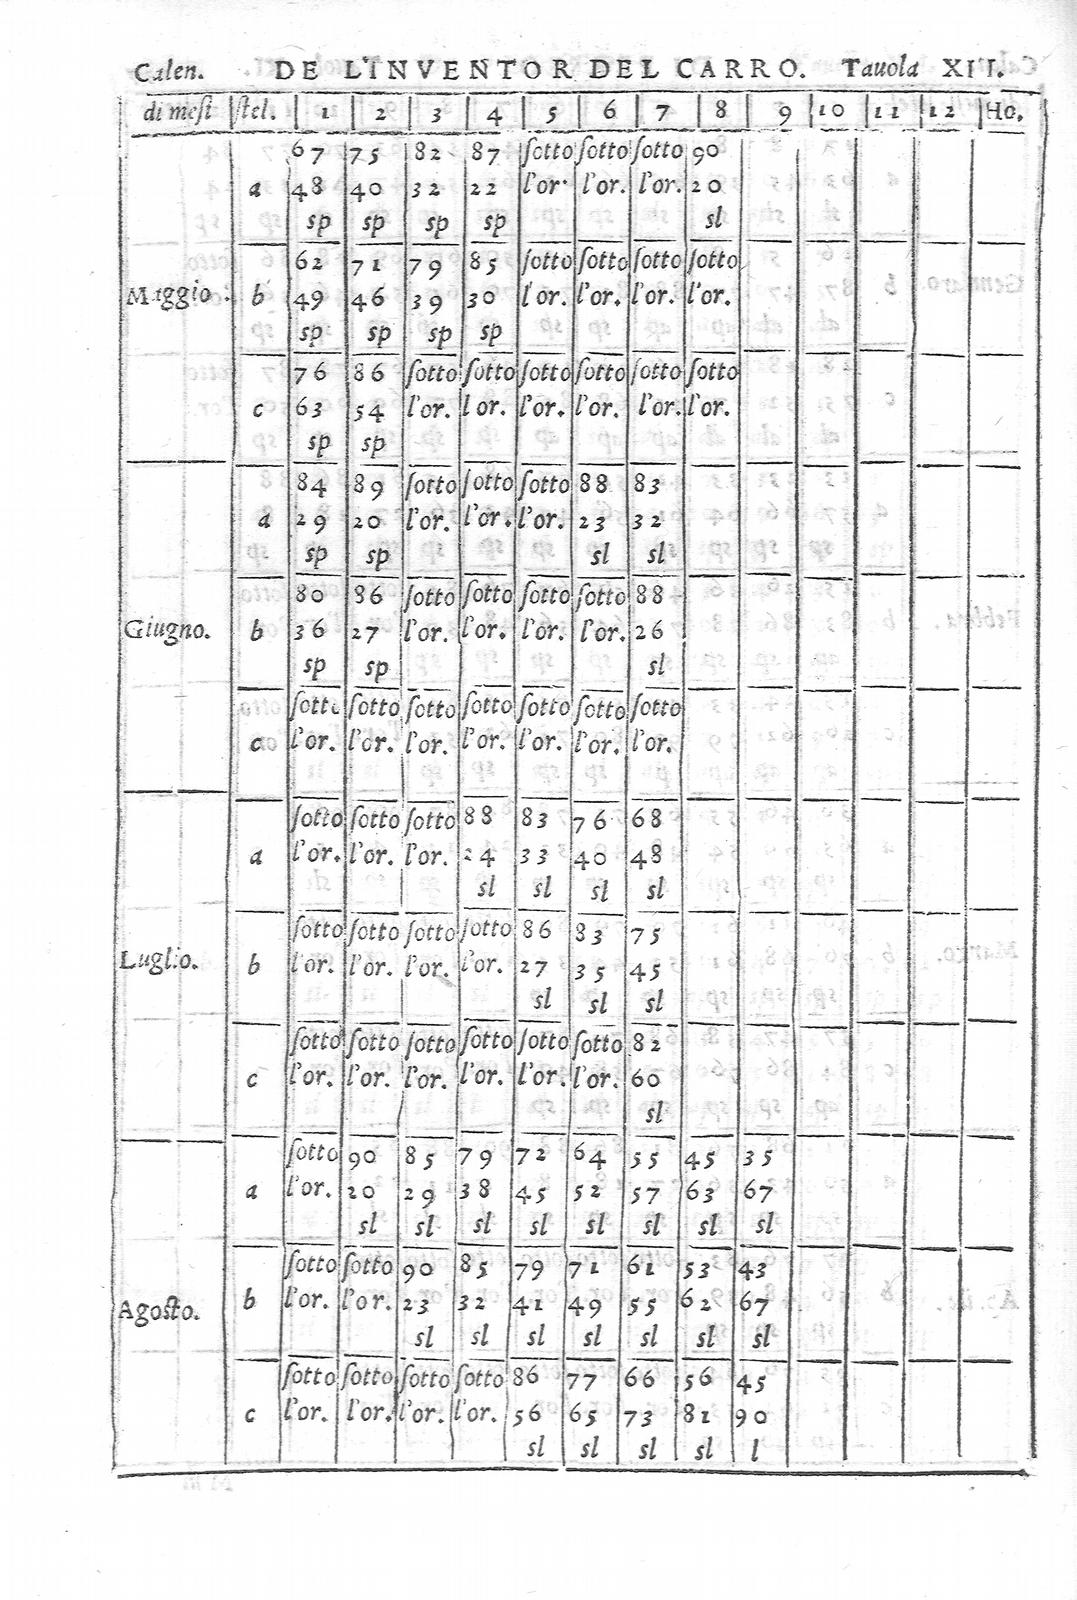 Calen. DE L'INVENTOR DEL CARRO. Tauola XIII.
di mesi ſtel. 1 2 3 4 5 6 7 8 9 10 11 12 Ho.
67 75 82 87 ſotto ſotto ſotto 90
a 48 40 32 22 l'or. l'or. l'or. 20
sp sp sp sp sl
62 71 79 85 ſotto ſotto ſotto ſotto
Maggio. b 49 46 39 30 l'or. l'or. l'or. l'or.
sp sp sp sp
76 86 ſotto ſotto ſotto ſotto ſotto ſotto
c 63 54 l'or. l'or. l'or. l'or. l'or. l'or.
sp sp
84 89 ſotto ſotto ſotto 88 83
a 29 20 l'or. l'or. l'or. 23 32
sp sp sl sl
80 86 ſotto ſotto ſotto ſotto 88
Giugno. b 36 27 l'or. l'or. l'or. l'or. 26
sp sp sl
ſotto ſotto ſotto ſotto ſotto ſotto ſotto
c l'or. l'or. l'or. l'or. l'or. l'or. l'or.
ſotto ſotto ſotto 88 83 76 68
a l'or. l'or. l'or. 24 33 40 48
sl sl sl sl
ſotto ſotto ſotto ſotto 86 83 75
Luglio. b l'or. l'or. l'or. l'or. 27 35 45
sl sl sl
ſotto ſotto ſotto ſotto ſotto ſotto 82
c l'or. l'or. l'or. l'or. l'or. l'or. 60
sl
ſotto 90 85 79 72 64 55 45 35
a l'or. 20 29 38 45 52 57 63 67
sl sl sl sl sl sl sl sl
ſotto ſotto 90 85 79 71 61 53 43
Agoſto. b l'or. l'or. 23 32 41 49 55 62 67
sl sl sl sl sl sl sl
ſotto ſotto ſotto ſotto 86 77 66 56 45
c l'or. l'or. l'or. l'or. 56 65 73 81 90
sl sl sl sl l